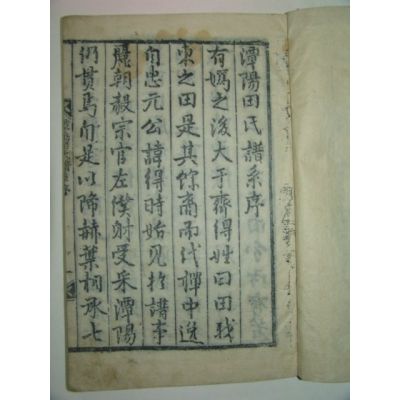 潭陽田氏譜系序
有媯之後大于齊得姓曰田我
東之田是其餘裔而代襌中逸
自忠元公諱得時始見於譜事
麗朝毅宗官左僕射受采潭陽
仍貫焉自是以降赫葉相承七